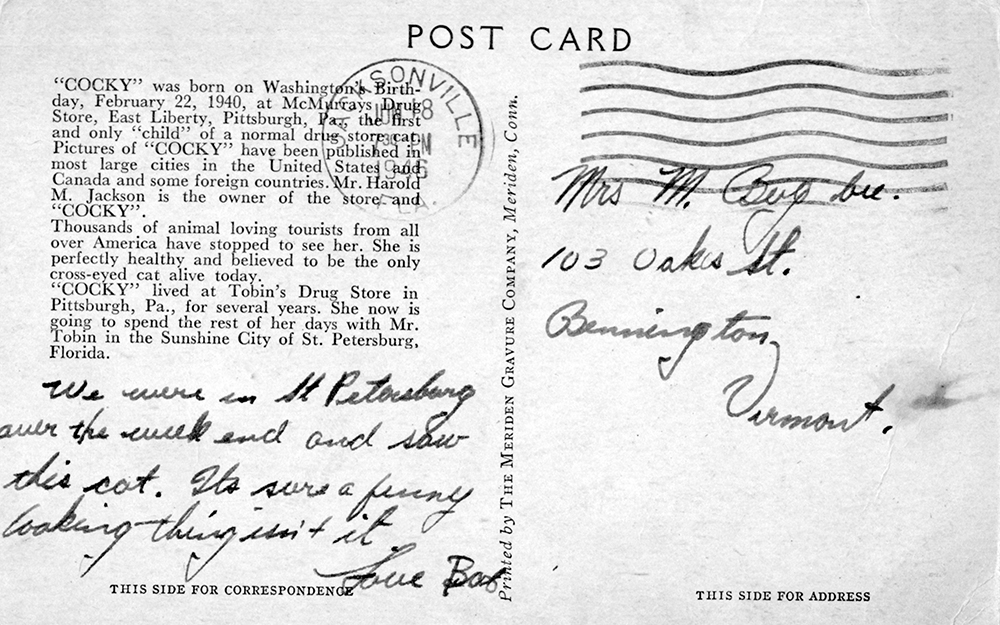 POST CARD
"COCKY" was born on Washington's Birth-
day, February 22, 1940, at McMurrays Drug
Store, East Liberty, Pittsburgh, Pa., the first
and only "child" of a normal drug store cat.
Pictures of "COCKY" have been published in
most large cities in the United States and
Canada and some foreign countries. Mr. Harold
M. Jackson is the owner of the store and
"COCKY".
Thousands of animal loving tourists from all
over America have stopped to see her. She is
perfectly healthy and believed to be the only
cross-eyed cat alive today.
"COCKY" lived at Tobin's Drug Store in
Pittsburgh, Pa., for several years. She now is
going to spend the rest of her days with Mr.
Tobin in the Sunshine City of St. Petersburg,
Florida.
We were in St Petersburg
over the week end and saw
this cat. Its sure a funny
looking thing isn't it
Love Bob
THIS SIDE FOR CORRESPONDENCE
JACKSONVILLE
8
PM
1946
FLA.
Printed by THE MERIDEN GRAVURE COMPANY, Meriden, Conn.
Mrs M.
103 Oakes St.
Bennington
Vermont.
THIS SIDE FOR ADDRESS